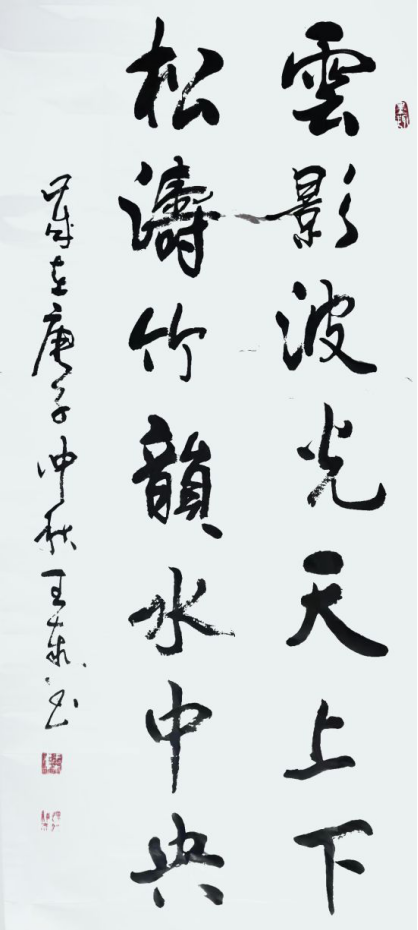 雲影波光天上下
松濤竹韻水中央
歲在庚子仲秋王